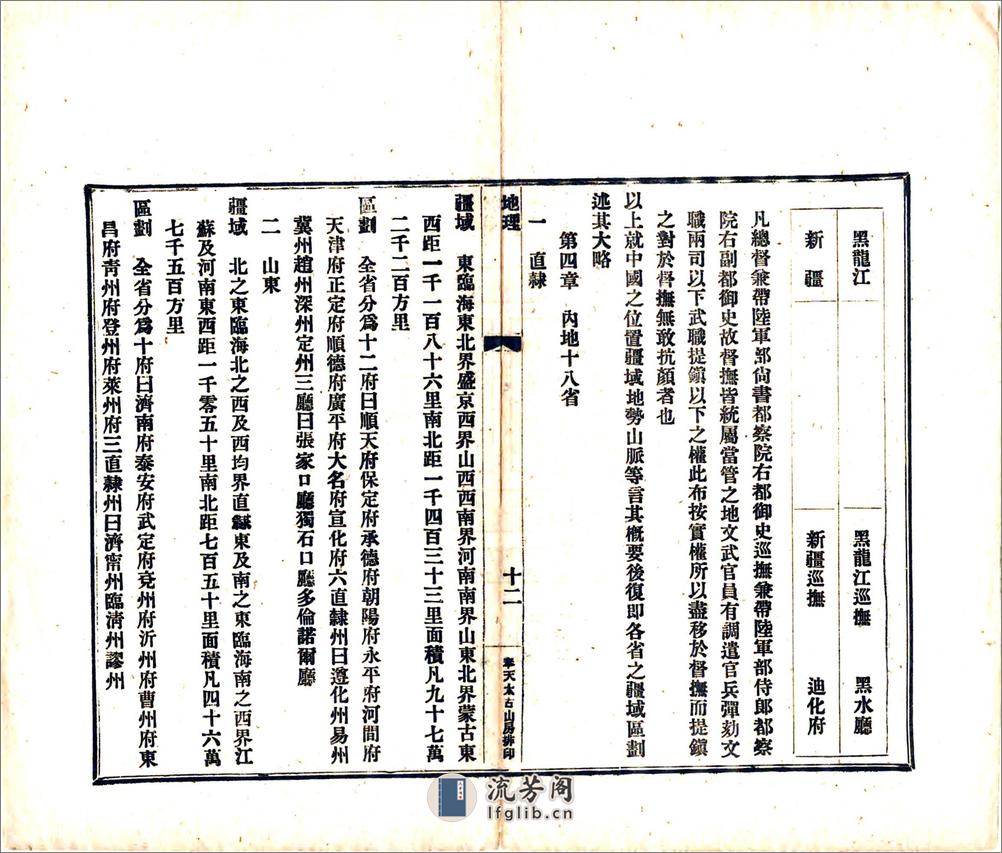 黑龍江　黑龍江巡撫　黑水廳
新疆　新疆巡撫　迪化府
凡總督兼帶陸軍部尙書都察院右都御史巡撫兼帶陸軍部侍郎都察
院右副都御史故督撫皆統屬當管之地文武官員有調遣官兵彈劾文
職兩司以下武職提鎭以下之權此布按實權所以盡移於督撫而提鎭
之對於督撫無敢抗顔者也
以上就中國之位置疆域地勢山脈等言其槪要後復即各省之疆域區劃
述其大略
第四章　內地十八省
一　直隸
地理　十二　奉天太古山房排印
疆域　東臨海東北界盛京西界山西西南界河南南界山東北界蒙古東
西距一千一百八十六里南北距一千四百三十三里面積凡九十七萬
二千二百方里
區劃　全省分爲十二府曰順天府保定府承德府朝陽府永平府河間府
天津府正定府順德府廣平府大名府宣化府六直隸州曰遵化州易州
冀州趙州深州定州三廳曰張家口廳獨石口廳多倫諾爾廳
二　山東
疆域　北之東臨海北之西及西均界直隸東及南之東臨海南之西界江
蘇及河南東西距一千零五十里南北距七百五十里面積凡四十六萬
七千五百方里
區劃　全省分爲十府曰濟南府泰安府武定府兗州府沂州府曹州府東
昌府靑州府登州府萊州府三直隸州曰濟甯州臨淸州謬州
流芳阁
lfglib.cn